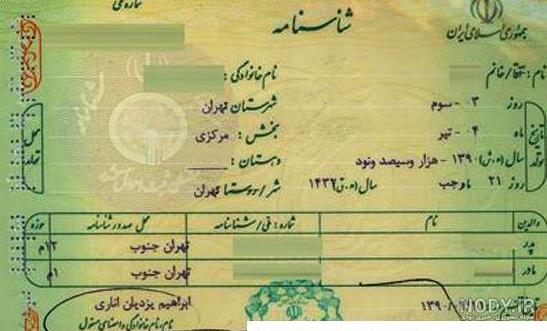 شماره ملی
شناسنامه
جمهوری اسلامی ایران
نام: آقا/خانم
نام خانوادگی:
روز ۳ - سوم
شهرستان تهران
ماه ۴ - تیر
بخش: مرکزی
تاریخ تولد
محل تولد
سال (ه.ش) ۱۳۹۰ - هزار و سیصد و نود
دهستان:
روز ۲۱ ماه رجب سال (ه.ق) ۱۴۳۲
شهر/روستا تهران
والدین نام شماره: ملی/شناسنامه محل صدور شناسنامه حوزه
پدر تهران جنوب ۱۲م
مادر تهران جنوب ۱م
ابراهیم یزدیان اناری
نام، نام خانوادگی و امضای مسئول
NODY.IR